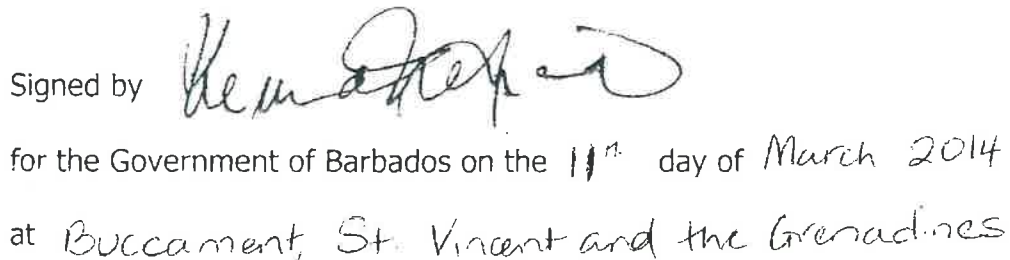 Signed by
for the Government of Barbados on the 11th day of March 2014
at Buccament, St. Vincent and the Grenadines